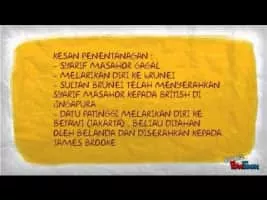 KESAN PENENTANGAN :
- SYARIF MASAHOR GAGAL
- MELARIKAN DIRI KE BRUNEI
- SULTAN BRUNEI TELAH MENYERAHKAN
SYARIF MASAHOR KEPADA BRITISH DI
SINGAPURA
- DATU PATINGGI MELARIKAN DIRI KE
BETAWI (JAKARTA) , BELIAU DITAHAN
OLEH BELANDA DAN DISERAHKAN KEPADA
JAMES BROOKE